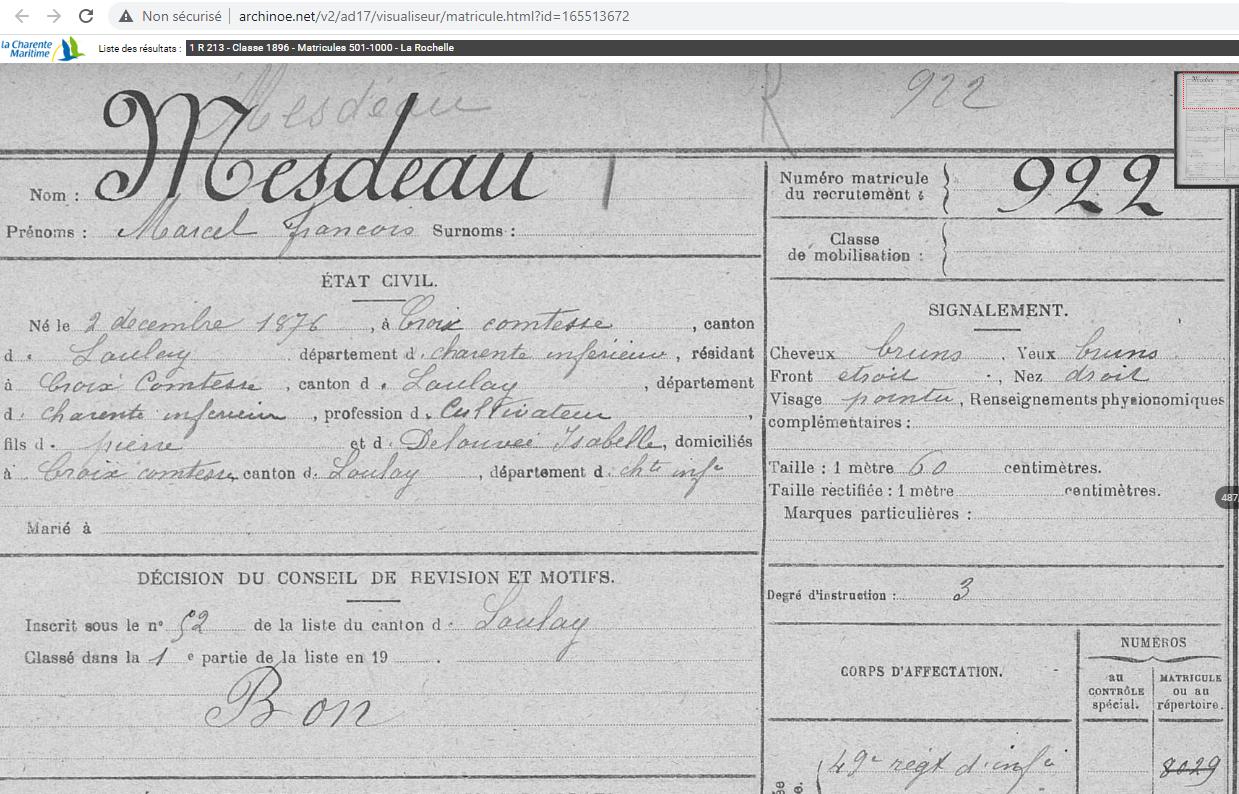 Non sécurisé archinoe.net/v2/ad17/visualiseur/matricule.html?id=165513672
la Charente Maritime Liste des résultats : 1 R 213 - Classe 1896 - Matricules 501-1000 - La Rochelle
Mesdeau R 922
Nom : Mesdeau
Prénoms : Marcel francois Surnoms :
Numéro matricule du recrutement : 922
Classe de mobilisation :
ÉTAT CIVIL.
Né le 2 decembre 1876, à Croix comtesse, canton
d. Loulay département d. charente inferieure, résidant
à Croix Comtesse, canton d. Loulay, département
d. charente inferieure, profession d. Cultivateur,
fils d. pierre et d. Delouvée Isabelle, domiciliés
à Croix comtesse, canton d. Loulay, département d. chte infre
Marié à
DÉCISION DU CONSEIL DE REVISION ET MOTIFS.
Inscrit sous le n° 52 de la liste du canton d. Loulay
Classé dans la 1 e partie de la liste en 19
Bon
SIGNALEMENT.
Cheveux bruns, Yeux bruns.
Front etroit, Nez droit
Visage pointu, Renseignements physionomiques
complémentaires :
Taille : 1 mètre 60 centimètres.
Taille rectifiée : 1 mètre centimètres.
Marques particulières :
487
Degré d'instruction : 3
CORPS D'AFFECTATION.
NUMÉROS
au CONTRÔLE spécial.
MATRICULE ou au répertoire.
49e régt d'infie 8029